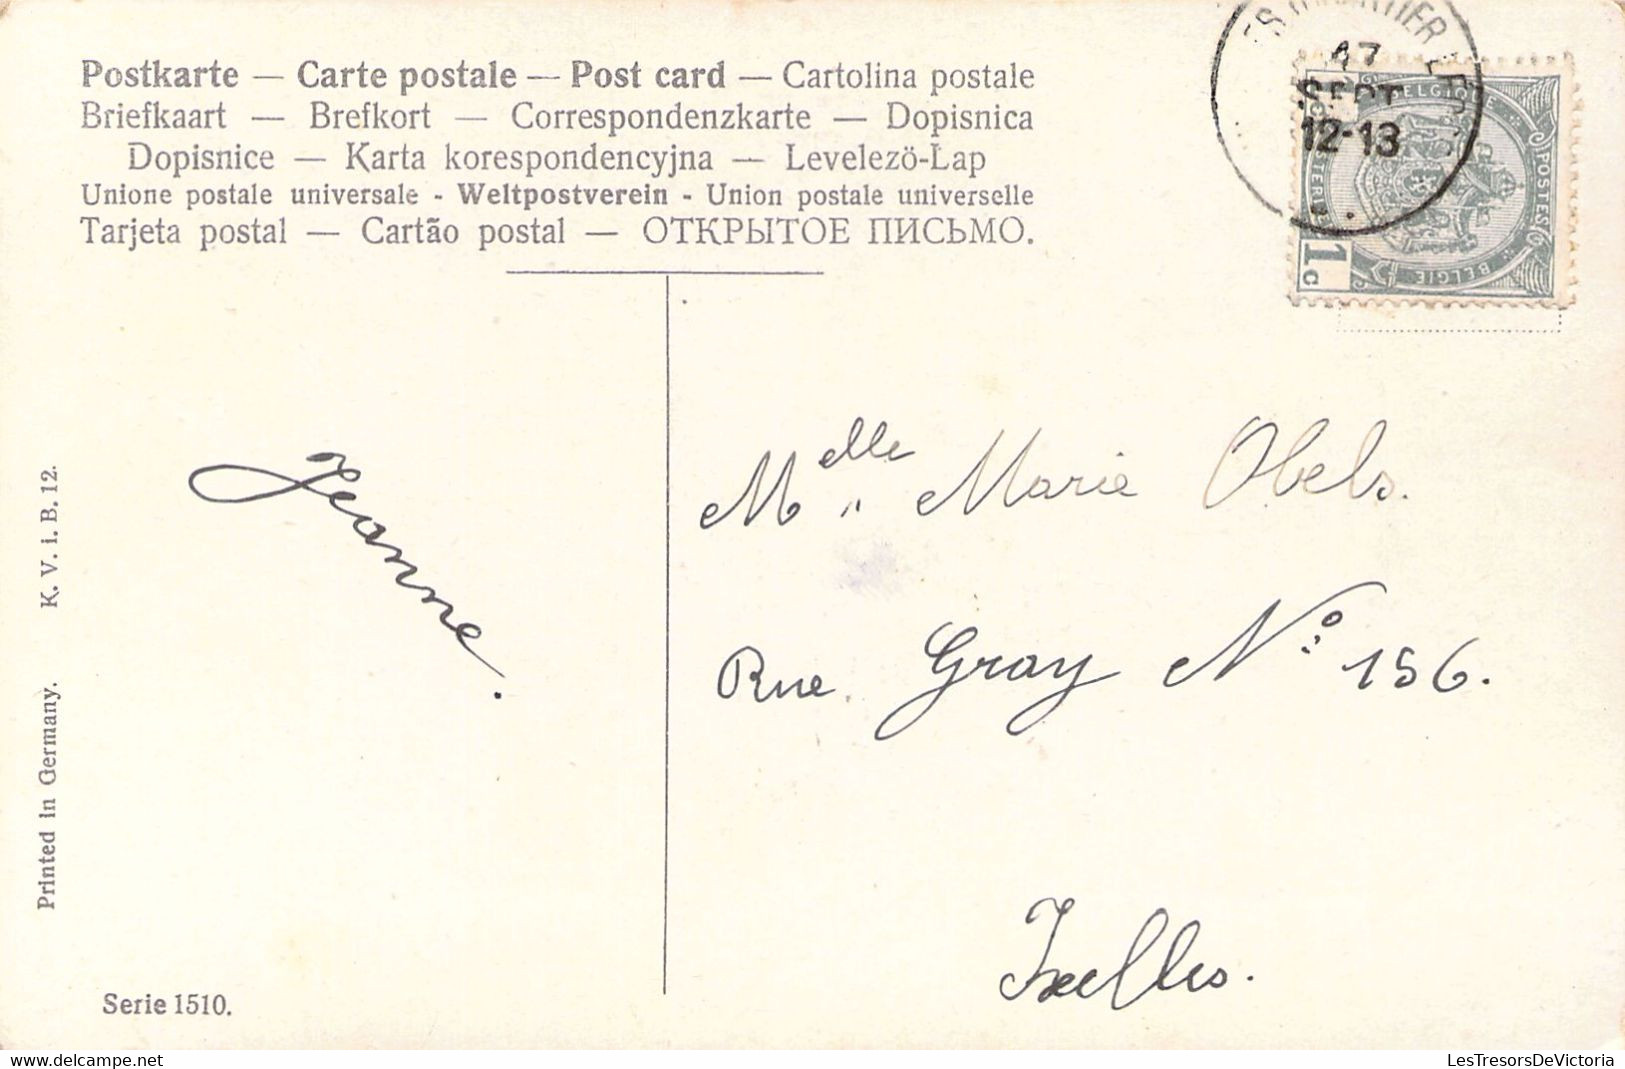 Postkarte — Carte postale — Post card — Cartolina postale
Briefkaart — Brefkort — Correspondenzkarte — Dopisnica
Dopisnice — Karta korespondencyjna — Levelezö-Lap
Unione postale universale - Weltpostverein - Union postale universelle
Tarjeta postal — Cartão postal — ОТКРЫТОЕ ПИСЬМО.
SEPT
12-13
BELGIQUE
POSTES
BELGIE
1c
Jeanne.
Melle „ Marie Obels.
Rue Gray No: 156.
Ixelles.
K. V. i. B. 12.
Printed in Germany.
Serie 1510.
delcampe.net
LesTresorsDeVictoria